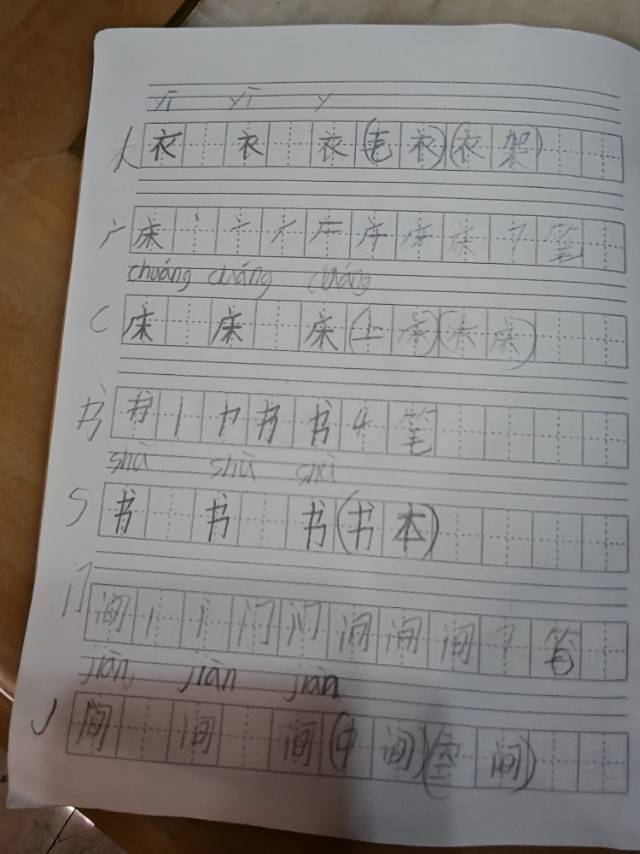 yī yī y
亠 衣 衣 衣 (毛 衣) (衣 架)
广 床 丶 亠 广 庁 床 床 7 笔
chuáng chuáng chuáng
C 床 床 床 (上 床) (木 床)
书 书 书 书 4 笔
shū shū shū
S 书 书 书 (书 本)
门 间 丶 门 门 间 间 间 7 笔
jiàn jiàn jiàn
J 间 间 间 (中 间) (空 间)